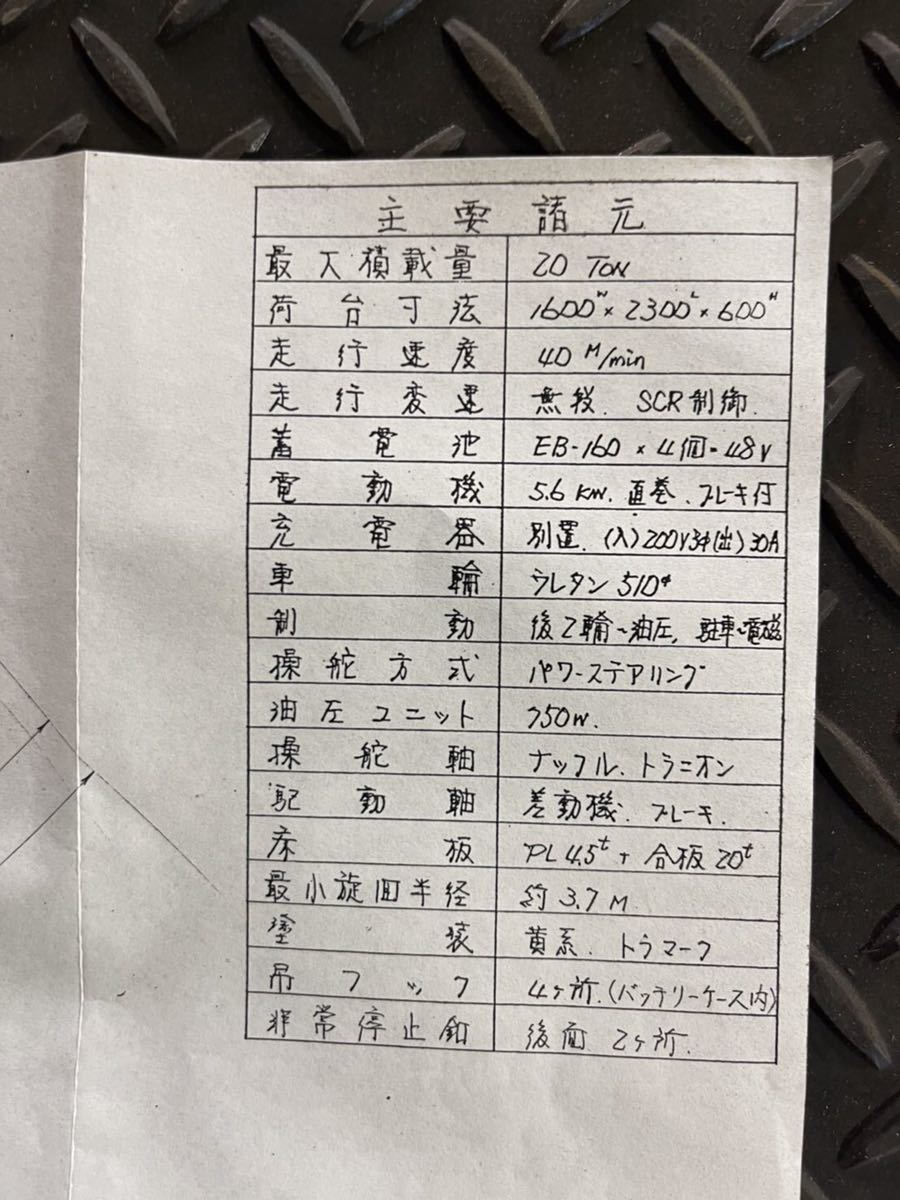 主要諸元
最大積載量 20 TON
荷台寸法 1600ᵂ × 2300ᴸ × 600ᴴ
走行速度 40 M/min
走行変速 無段. SCR制御.
蓄電池 EB-160 × 4個=48V
電動機 5.6 KW. 直巻. ブレーキ付
充電器 別置. (入)200V3Φ(出)30A
車輪 ウレタン 510Φ
制動 後2輪~油圧, 駐車~電磁
操舵方式 パワーステアリング
油圧ユニット 750W.
操舵軸 ナックル. トラニオン
駆動軸 差動機. ブレーキ.
床板 PL4.5ᵗ + 合板20ᵗ
最小旋回半径 約3.7M
塗装 黄系. トラマーク
吊フック 4ヶ所.(バッテリーケース内)
非常停止釦 後面 2ヶ所.